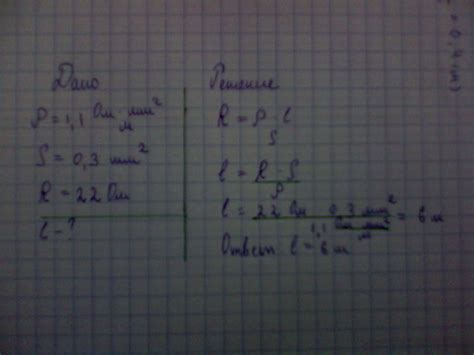 Дано
ρ = 1,1 Ом · мм² / м
S = 0,3 мм²
R = 22 Ом
l - ?
Решение
R = ρ l / S
l = R · S / ρ
l = 22 Ом · 0,3 мм² / 1,1 Ом · мм² / м = 6 м
Ответ l = 6 м